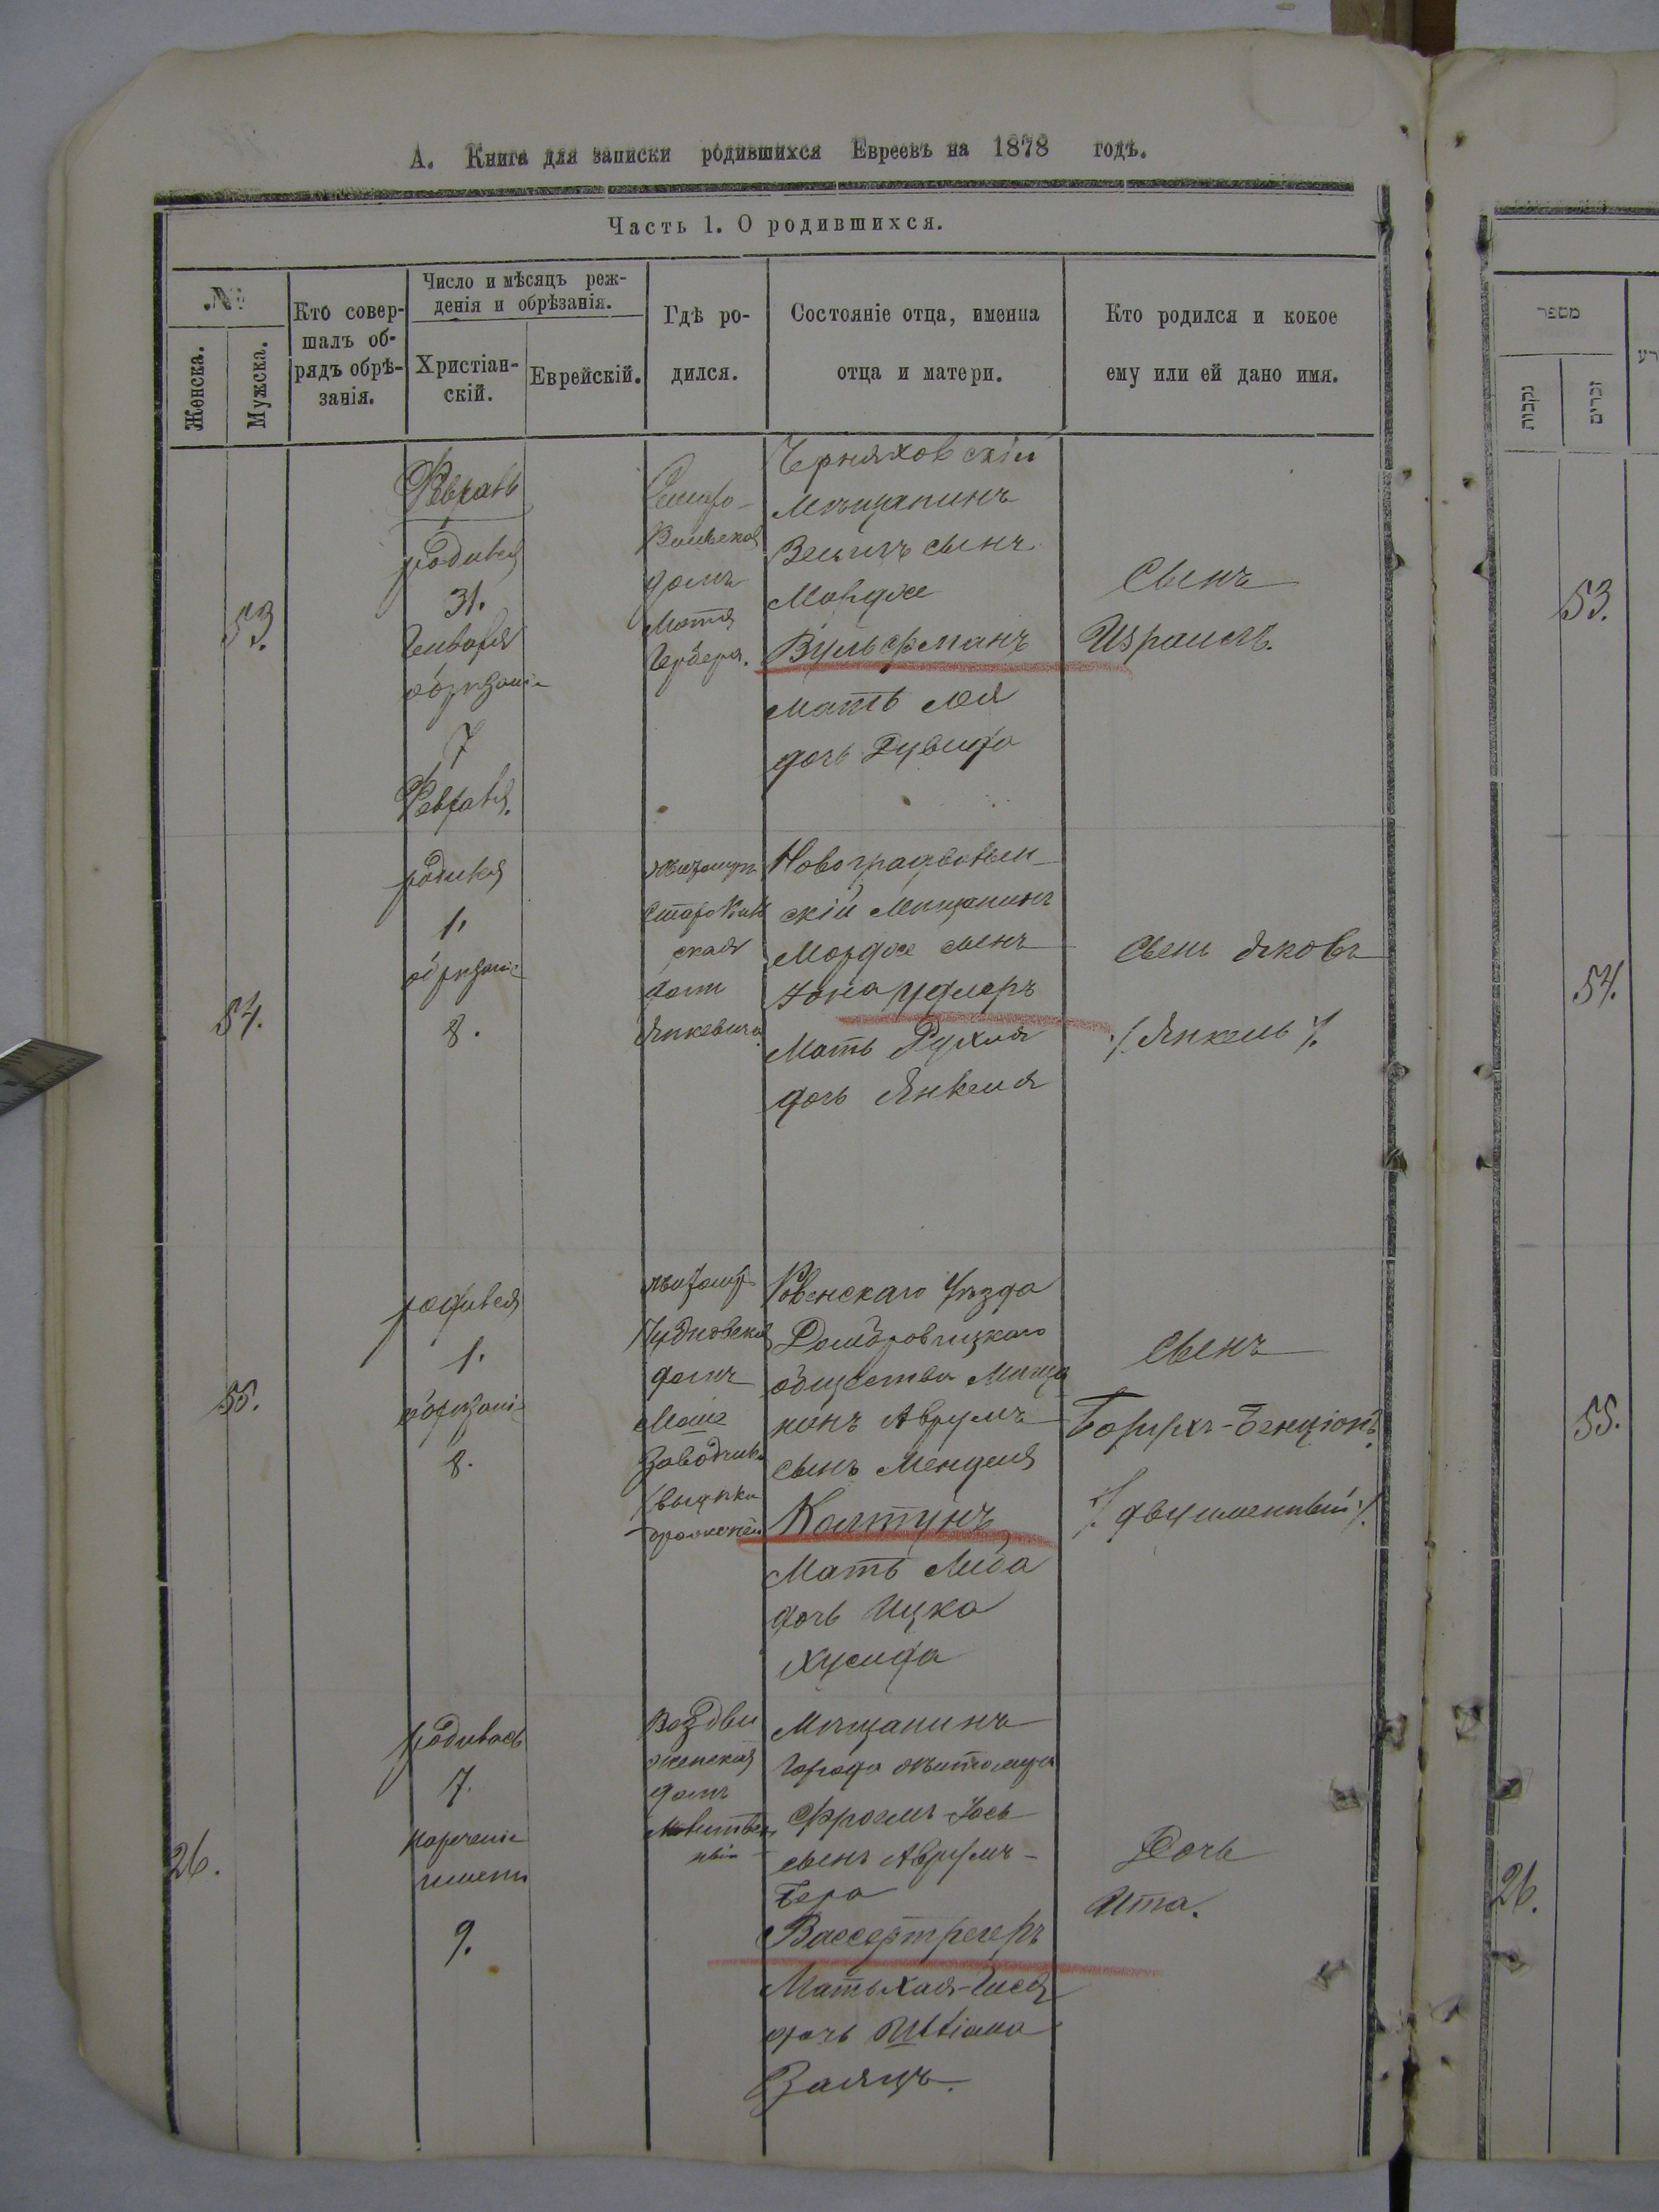 А. Книга для записки родившихся Евреевъ на 1878 годъ.
Часть 1. О родившихся.
№
Женска.
Мужска.
Кто совер-
шалъ об-
рядъ обрѣ-
занія.
Число и мѣсяцъ реж-
денія и обрѣзанія.
Христіан-
скій.
Еврейскій.
Гдѣ ро-
дился.
Состояніе отца, именна
отца и матери.
Кто родился и кокое
ему или ей дано имя.
53.
родился
31.
Генваря
7
Февраля.
домъ
Черняховскій
Мѣщанинъ
сынъ
Мордже
Вульфманъ
мать Лея
дочь Дувида
Сынъ
Израиль.
54.
родился
1.
8.
домъ
Янкевича
скій Мѣщанинъ
Мордже сынъ
Іона Удлеръ
Мать Рухля
дочь Янкеля
Сынъ Яковъ
/. Янкель /.
55.
родился
1.
8.
Чудновская
домъ
Заводчика
Ровенскаго Уѣзда
Домбровицкаго
общества Мѣща
нинъ Аврумъ
сынъ Менделя
Колтунъ,
Мать Либа
дочь Ицка
Хусида
Сынъ
Борухъ-Бенціонъ
/. двуименный /.
26.
родилась
7.
нареченіе
имени
9.
Воздви
женская
домъ
Мѣщанинъ
города Житомира
Фроимъ-Іось
сынъ Аврумъ-
Бера
Вассертрегеръ
Мать Хая-
дочь
Заяцъ.
Дочь
Ита.
מספר
נקבות
זכרים
53.
54.
55.
26.